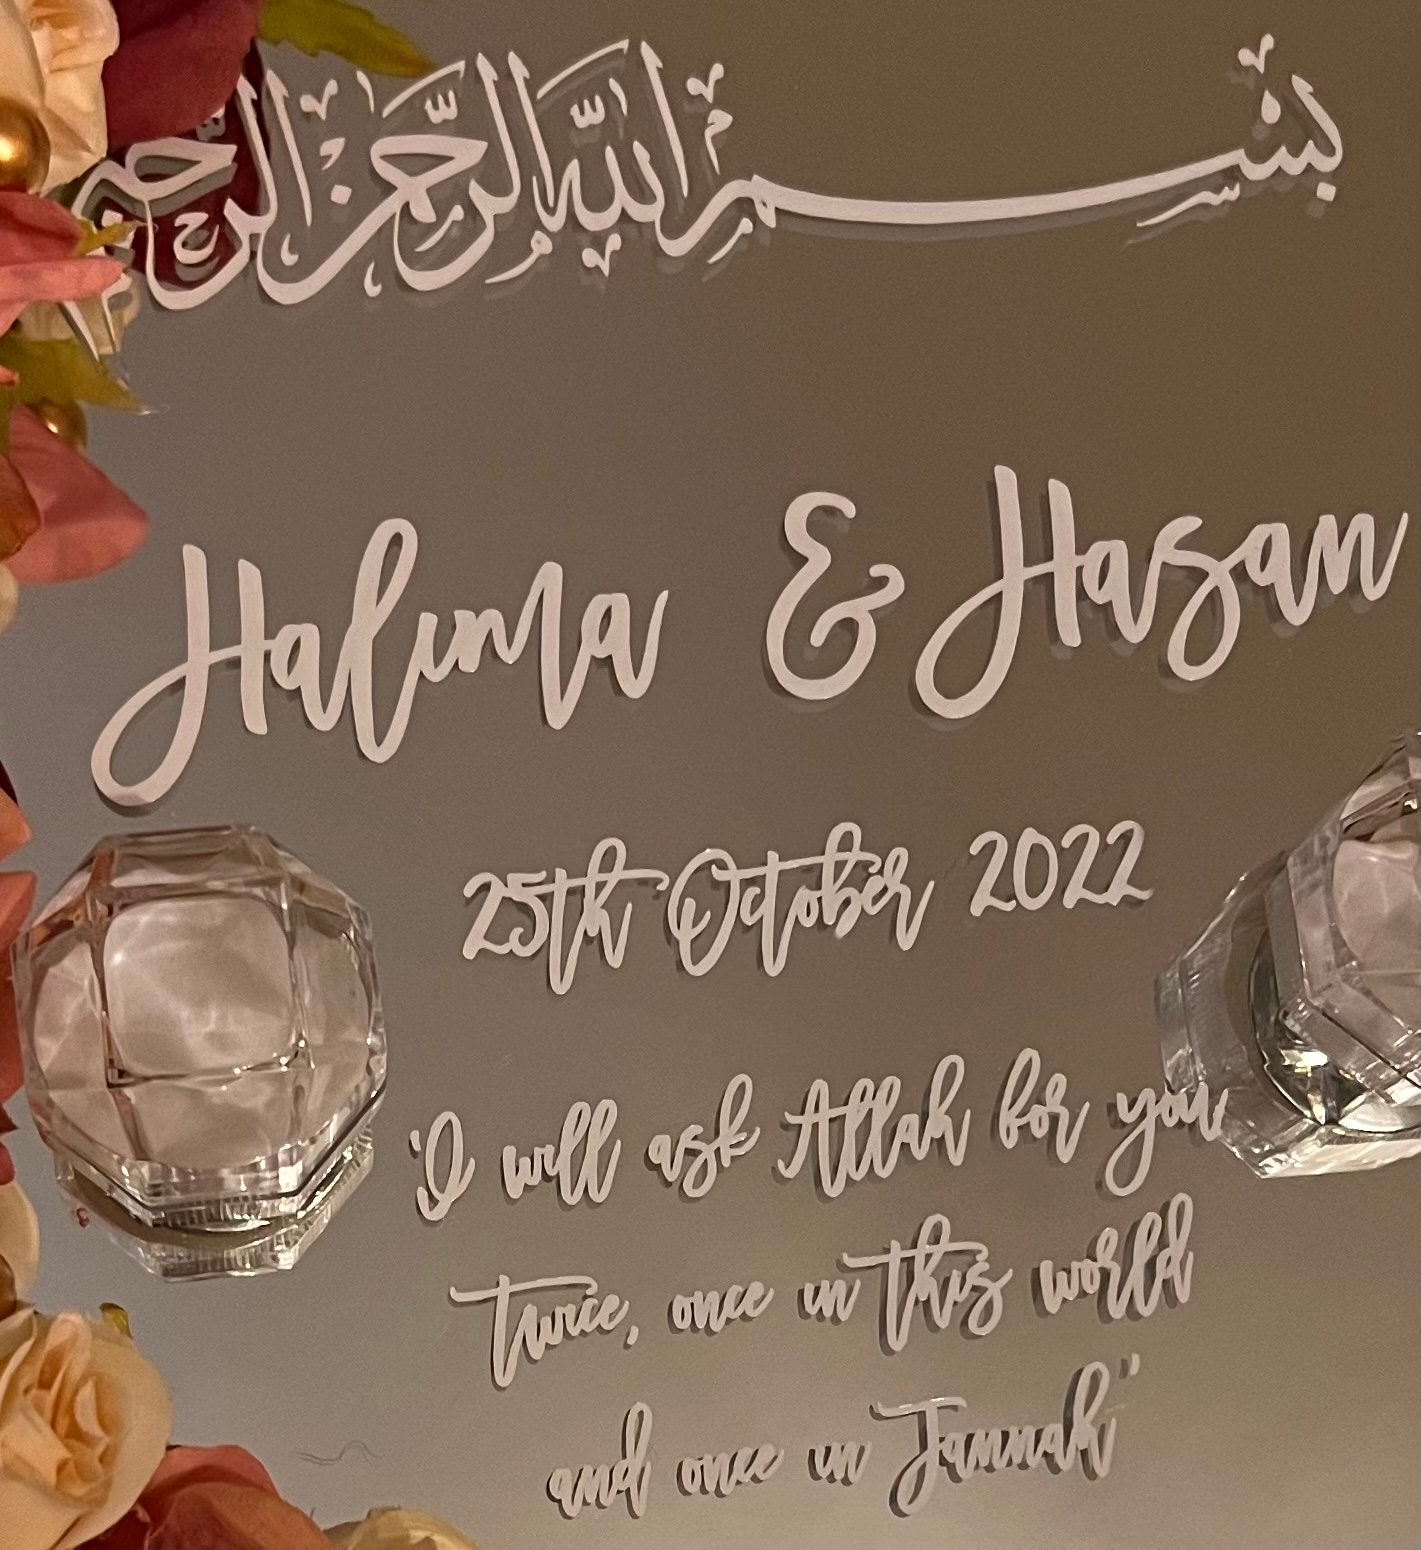 بسم الله الرحمن الرحيم
Halima & Hasan
25th October 2022
"I will ask Allah for you
twice, once in this world
and once in Jannah"